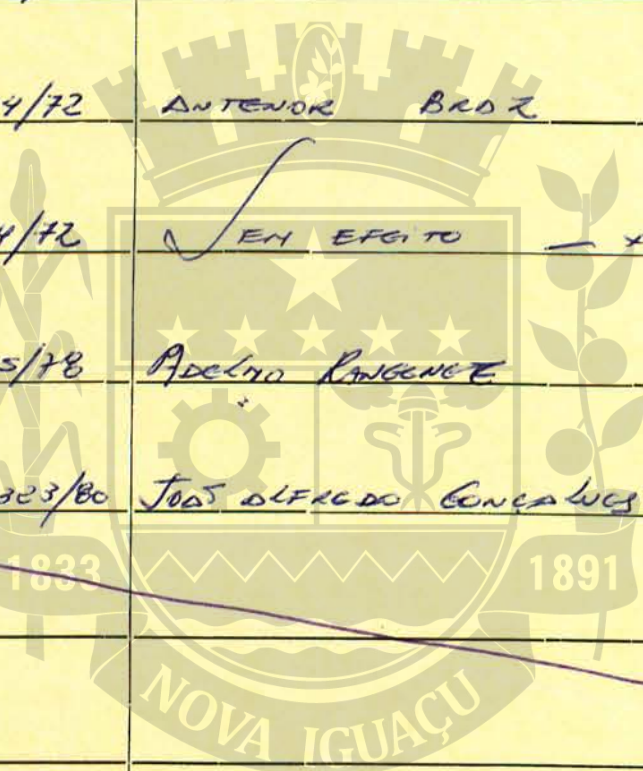 4/72 ANTENOR BRAZ
4/72 SEM EFEITO —
5/78 ADELMO
323/80 JOÃO ALFREDO GONÇALVES
1833 1891
NOVA IGUAÇU